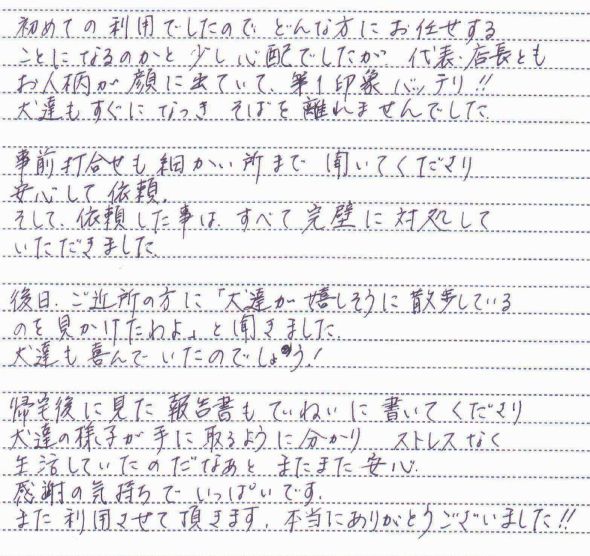 初めての利用でしたので どんな方に お任せする
ことになるのかと 少し心配でしたが 代表・店長とも
お人柄が顔に出ていて、第1印象 バッチリ!!
犬達もすぐになつき そばを離れませんでした。
事前打合せも 細かい所まで 聞いてくださり
安心して依頼。
そして、依頼した事は、すべて 完璧に 対処して
いただきました。
後日、ご近所の方に「犬達が 嬉しそうに 散歩している
のを見かけたわよ」と聞きました。
犬達も喜んでいたのでしょう!
帰宅後に見た 報告書も ていねいに 書いてくださり
犬達の様子が手に取るように分かり ストレスなく
生活していたのだなあと またまた 安心。
感謝の気持ちで いっぱいです。
また利用させて頂きます。本当にありがとうございました!!